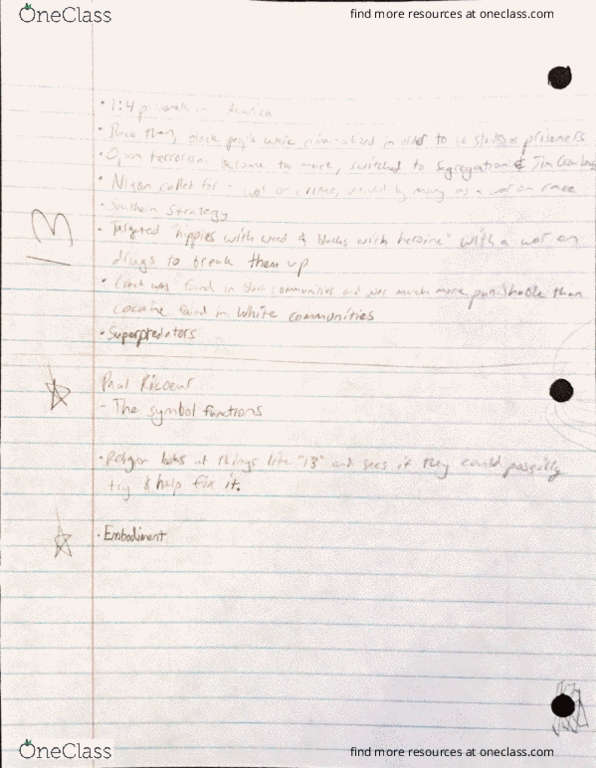 OneClass
find more resources at oneclass.com
• 1:4 America
• Back then, black people were criminalized in order to be slaves or prisoners
• Open terrorism became too much, switched to segregation & Jim Crow laws
• Nixon called for war on crime, by many as a war on race
• Southern Strategy
13
• Targeted "hippies with weed & blacks with heroine" with a war on
drugs to break them up
• Crack was found in black communities and was much more punishable than
cocaine found in white communities
• Superpredators
Paul Ricoeur
- The symbol functions
• religion looks at things like "13" and sees if they could possibly
try & help fix it.
• Embodiment
OneClass
find more resources at oneclass.com